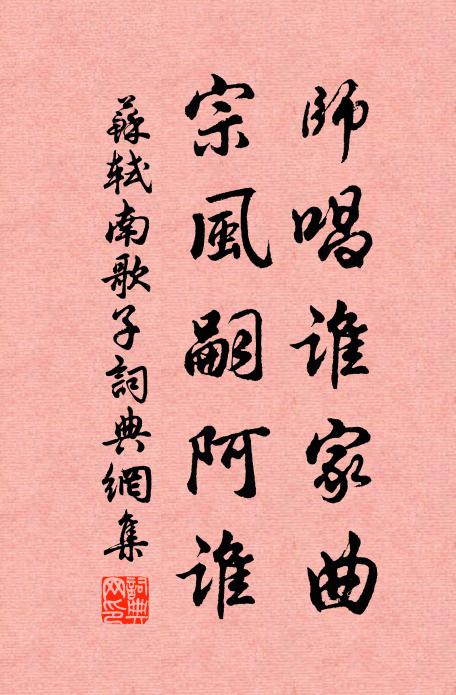 師唱誰家曲
宗風嗣阿誰
蘇軾南歌子詞典網集